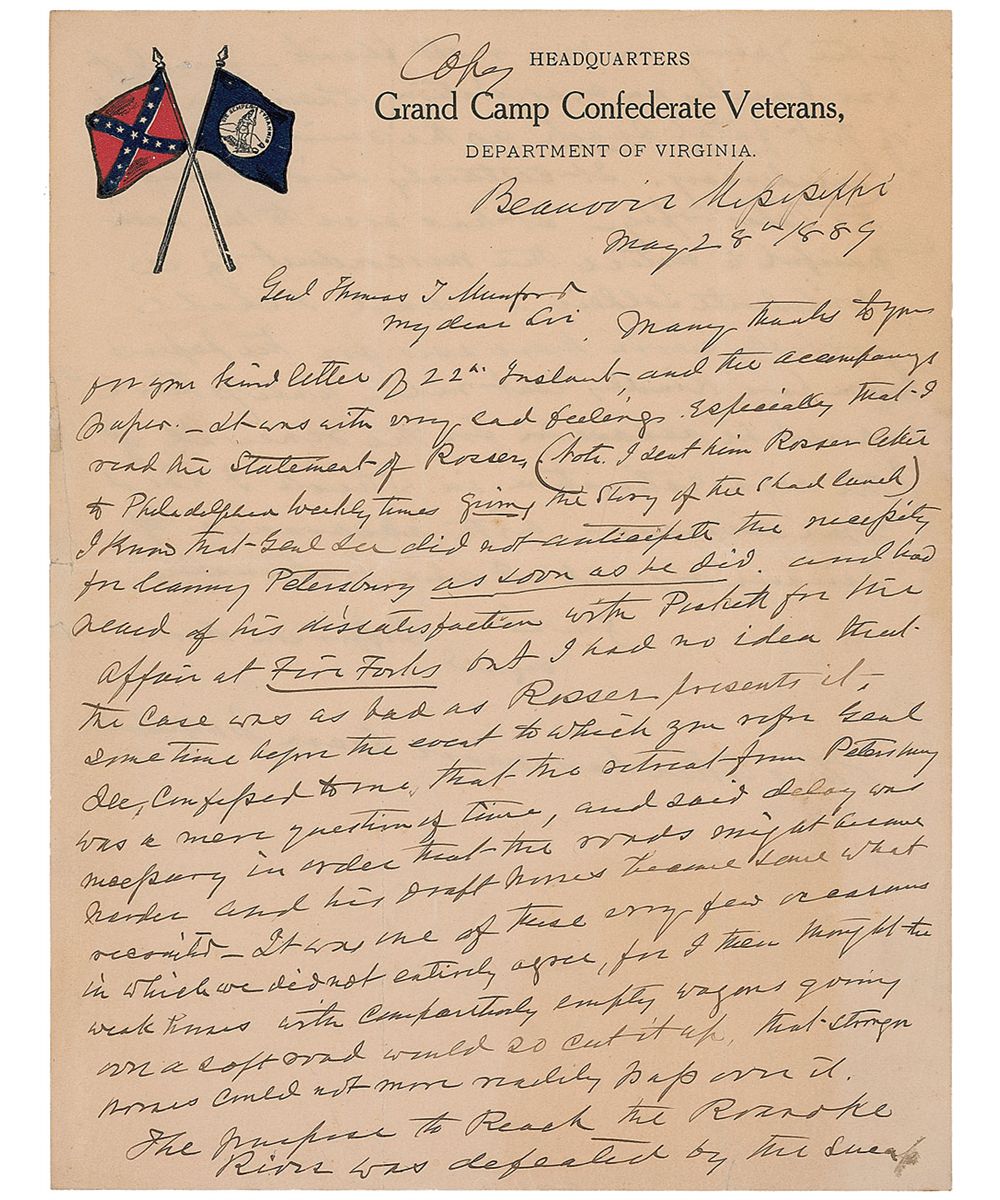 Copy
HEADQUARTERS
Grand Camp Confederate Veterans,
DEPARTMENT OF VIRGINIA.
Beauvoir Mississippi
May 28th 1889
Genl Thomas T Munford
My dear Sir Many thanks to you
for your kind letter of 22nd Instant, and the accompanying
paper. – It was with very sad feelings. Especially that I
read the Statement of Rosser, (Note. I sent him Rosser letter
to Philadelphia Weekly times giving the Story of the Shad lunch)
I know that Genl Lee did not anticipate the necessity
for leaving Petersburg as soon as he did. and had
heard of his dissatisfaction with Pickett for the
affair at Five Forks but I had no idea that
the case was as bad as Rosser presents it.
sometime before the event to which you refer Genl
Lee, confessed to me, that the retreat from Petersburg
was a mere question of time, and said delay was
necessary in order that the roads might become
harder and his draft horses become some what
recruited – It was one of those very few occasions
in which we did not entirely agree, for I then thought the
weak horses with comparatively empty wagons going
over a soft road would so cut it up, that stronger
horses could not more readily pass over it.
The purpose to Reach the Roanoke
River was defeated by the